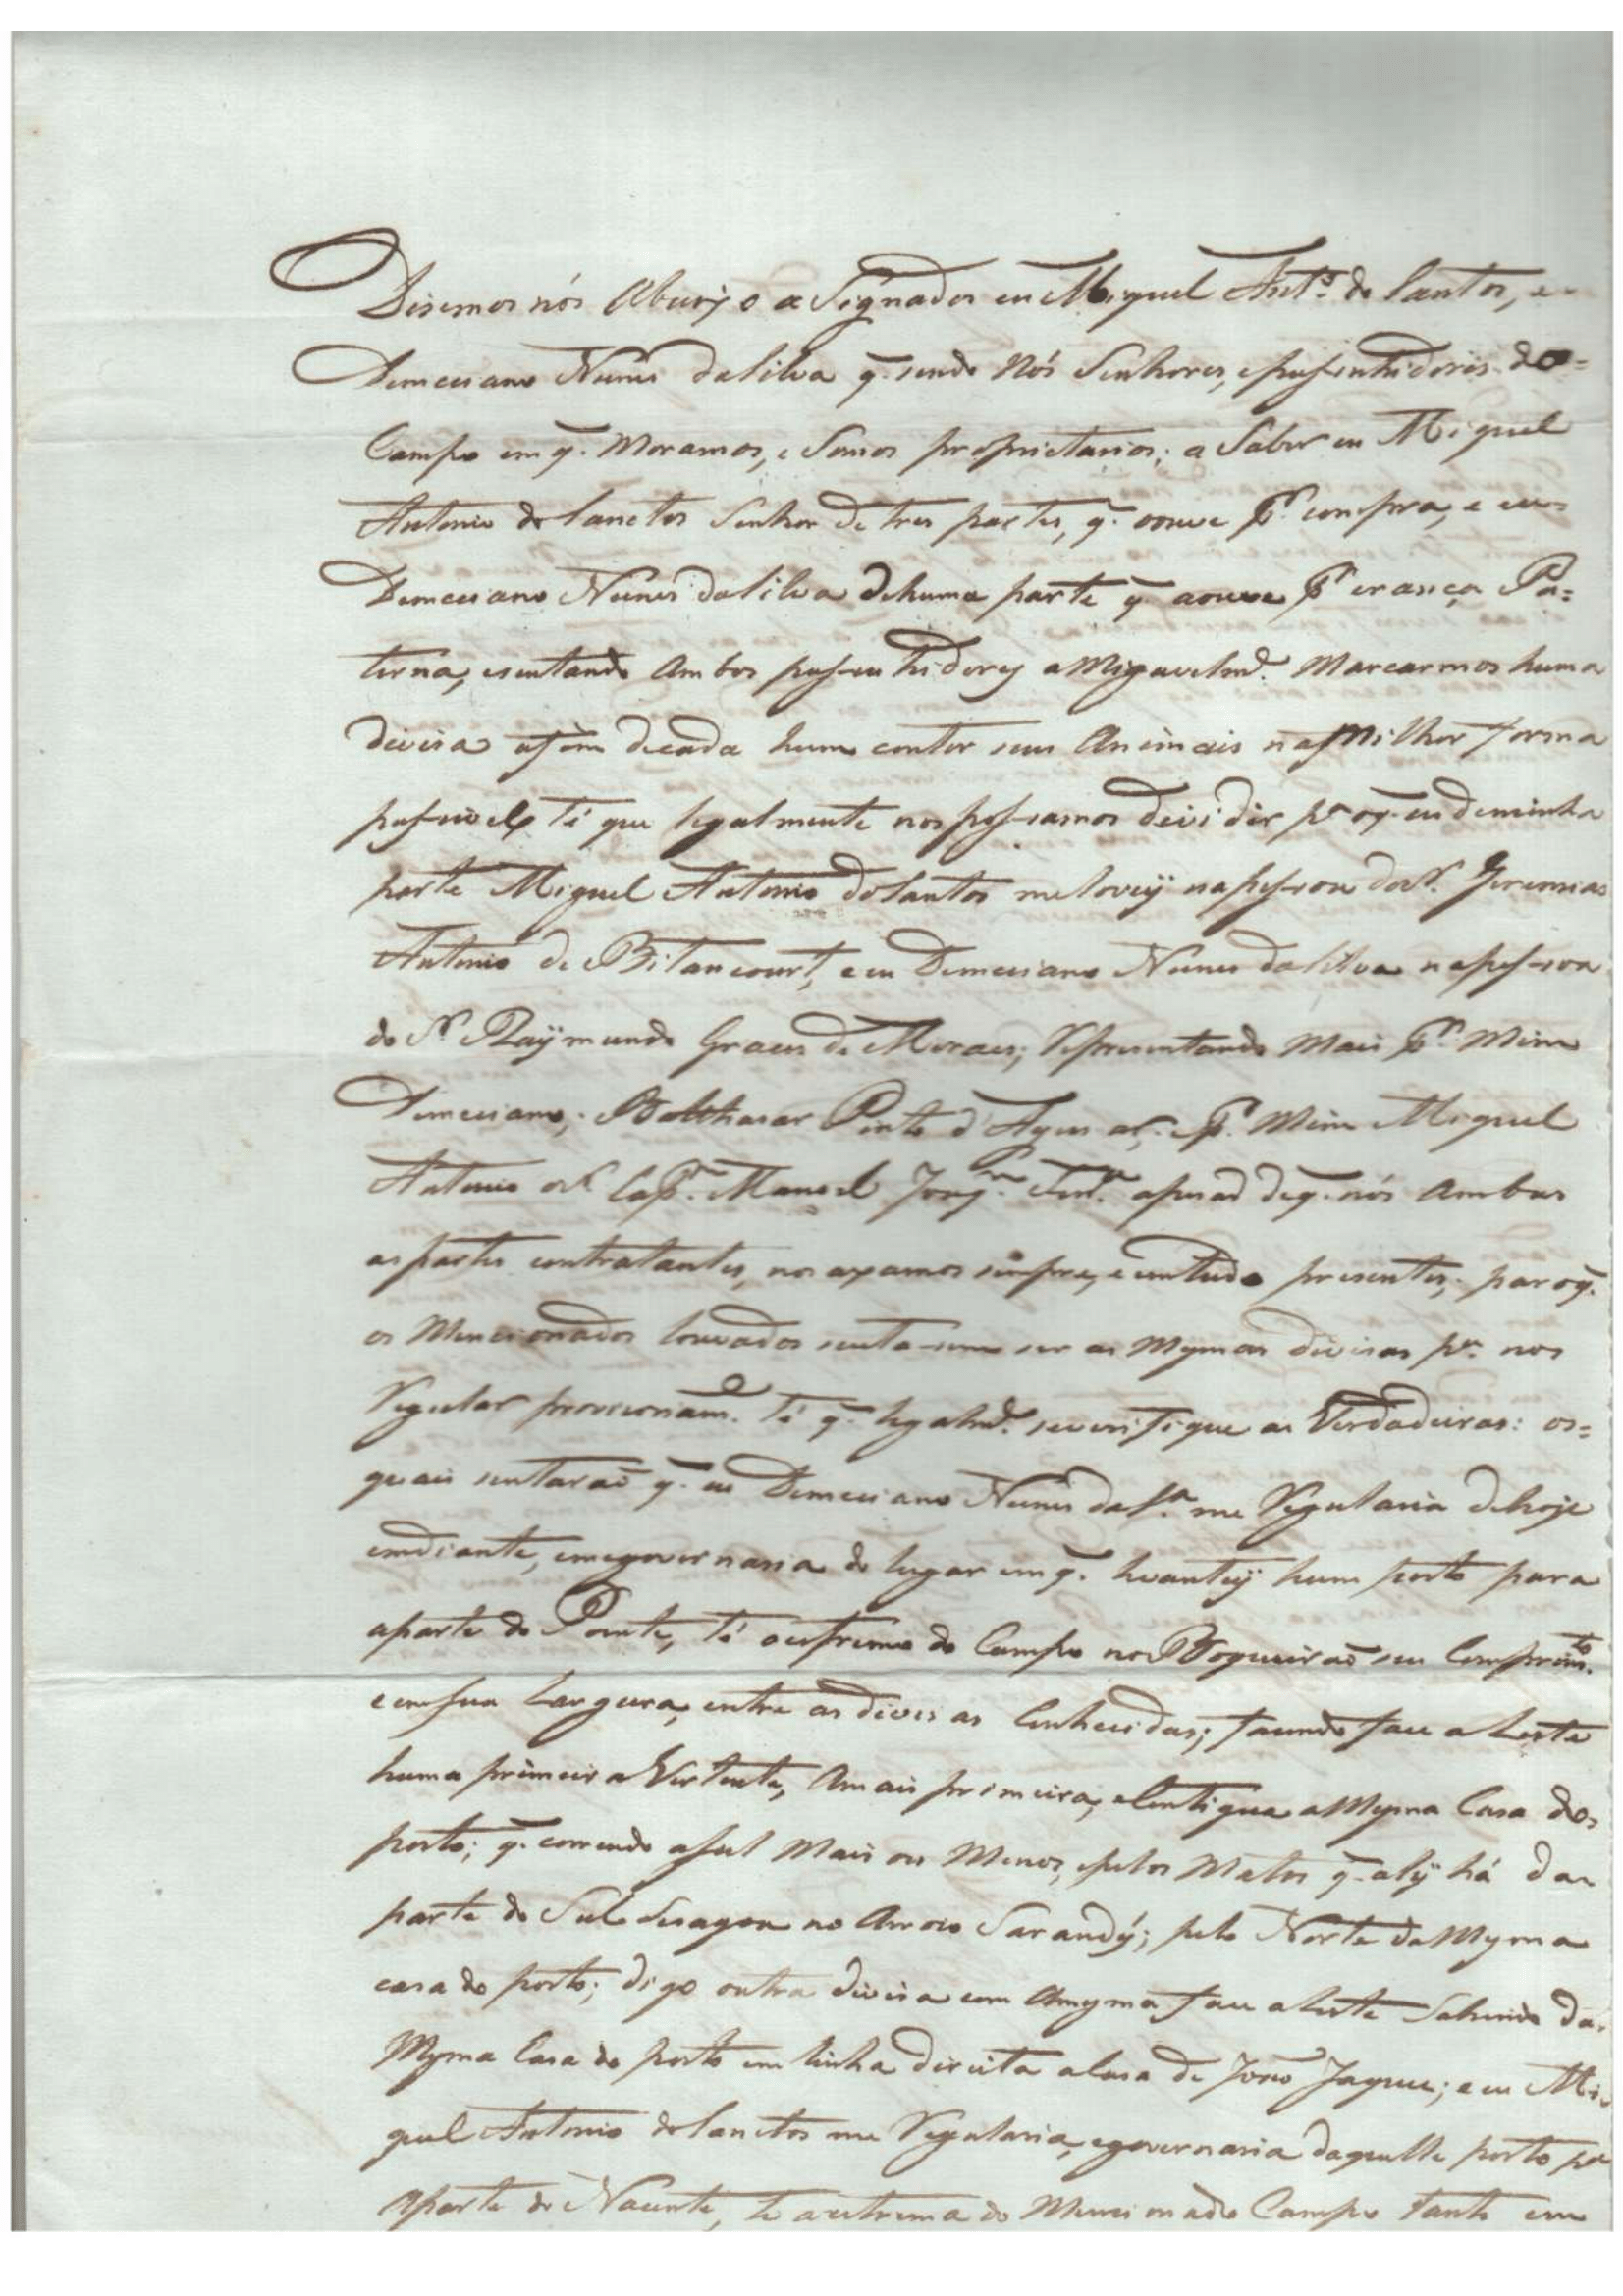 Disemos nós Abaixo a Signados eu Miguel Antº. do Santos, e
Demeciano Nunes da Silva q. sendo Nós Senhores, epussuhidores do=
Campo em q. Moramos, e Somos proprietarios; a Saber eu Miguel
Antonio do Sanctos Senhor de tres partes, q. oouve pr. compra, e eu
Demeciano Nunes da Silva de huma parte q. aouve pr erança Pa=
terna, e sentando Ambos pussuhidores aMigavelmde. Marcarmos huma
deviza afim decada hum conter seus Animais na Milhor forma
pussivel, té que legalmente nos possamos devidir pr oq. eu deminha
parte Miguel Antonio do Santos me lovey napessoa do Sr. Jeremias
Antonio de Bitancourt, e eu Demeciano Nunes da Silva napessoa
do Sr Raÿmundo de Moraes; Representando Mais pr. Mim
Demeciano; Balthasar Pinto d'Aguiar; e pr. Mim Miguel
Antonio o Sr Capm. Manoel Joaqm. apezar de q. nós Ambas
as partes contratantes, nos axamos sempre, e emtudo presentes; por oq.
os Mencionados louvados ser as Mesmas divisas pa. nos
Regular provisoriamde. té q. legalmde. severifique as Verdadeiras: os=
quais sentaraõ q. eu Demeciano Nunes da Sa. me Regularia dehoje
emdiante, emegovernaria do lugar emq. levantey hum posto para
aparte do Poente, té oextremo do Campo no Boqueiraõ seu Comprimto.
e emsua Largura, entre as divisas Conhecidas; fazendo face a Leste
huma primeira Vertente, Amais primeira, eContigua aMesma Casa do
posto; q. correndo aSul Mais ou Menos, epelos Matos q. alÿ há da
parte do Sul desagoa no Arroio Sarandý; pelo Norte da Mesma
casa do posto; digo outra divisa com Amesma face aLeste Sahindo da
Mesma Casa do posto em linha direita aCasa de Joaõ Jaques; e eu Mi=
guel Antonio do Sanctos me Regularia, egovernaria daquelle posto pa
Aparte do Nacente, té aextrema do Mencionado Campo tanto em